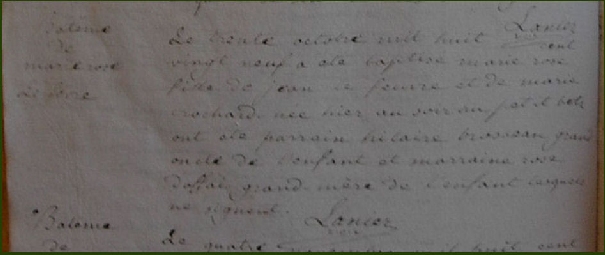 bateme
de
marie rose
Le trente octobre mil huit cent
vingt neuf a ete baptisé marie rose
fille de jean le feuvre et de marie
crochard née hier au soir au petit
ont ete parrain hilaire brosseau grand
oncle de l'enfant et marraine rose
grand-mère de l'enfant lesquels
ne signent.
Lancer
Bateme
de
Le quatre mil huit cent